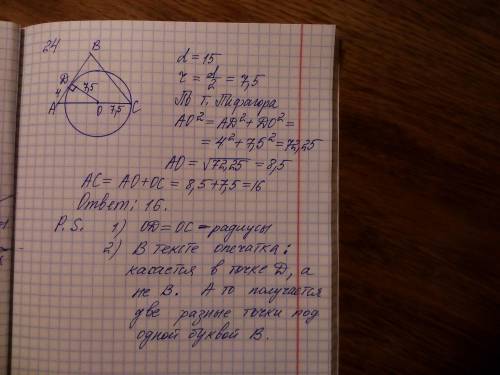 24
B
D
4
7,5
A
O
7,5
C
d = 15
r = d/2 = 7,5
По т. Пифагора
AO² = AD² + DO² =
= 4² + 7,5² = 72,25
AO = √72,25 = 8,5
AC = AO + OC = 8,5 + 7,5 = 16
Ответ: 16.
P.S. 1) OD = OC – радиусы
2) В тексте опечатка:
касается в точке D, а
не B. А то получается
две разные точки под
одной буквой B.